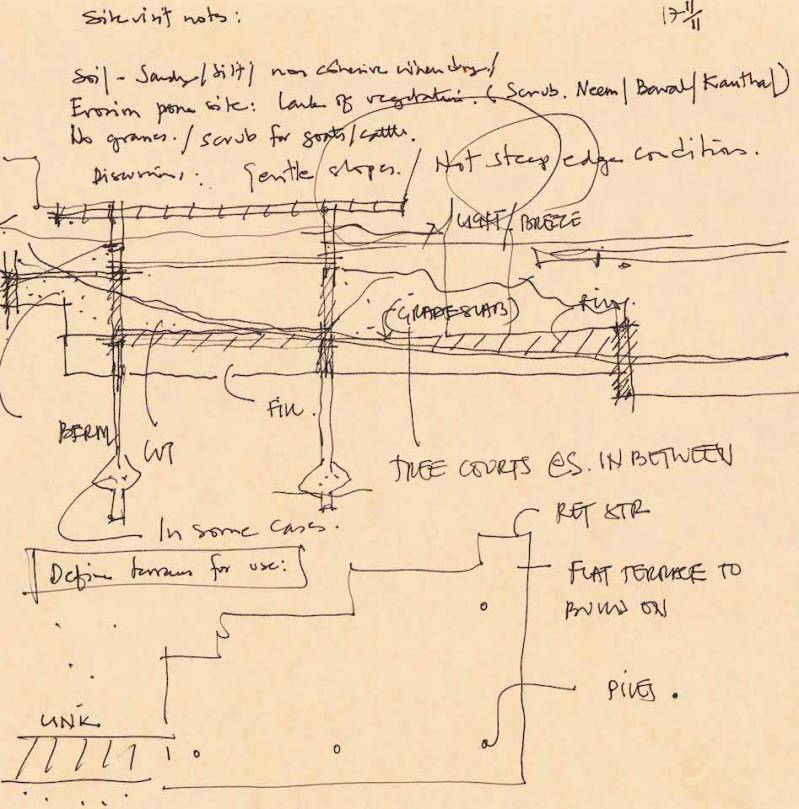 Site visit notes:
17/11/11
Soil - Sandy/Silt/ non cohesive when dry/
Erosion prone site: Lack of vegetation. (Scrub. Neem/Baval/Kanthal)
No grasses./scrub for goats/cattle.
Discussions: Gentle slopes. / Not steep edge condition.
LIGHT/BREEZE
(GRADE SLAB)
FILL
FILL.
BERM
CUT
TREE COURTS @S. IN BETWEEN
In some cases.
RET STR
Define terraces for use:
FLAT TERRACE TO
BUILD ON
PILES.
LINK